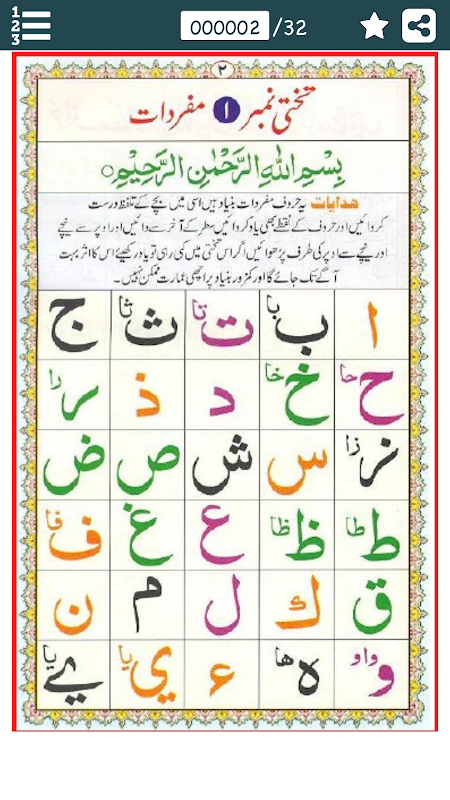 1
2
3
000002 /32
٢
تختی نمبر ١ مفردات
بِسْمِ اللهِ الرَّحْمٰنِ الرَّحِيْمِ
ھدایات یہ حروف مفردات بنیاد ہیں اسی میں بچے کے تلفظ درست
کروائیں اور حروف کے نقطے بھی یاد کروائیں سطر کے آخر سے دائیں اور اوپر سے نیچے
اور نیچے سے اوپر کی طرف پڑھوائیں اگر اس تختی میں کمی رہی تو یاد رکھیئے اس کا اثر بہت
آگے تک جائے گا اور کمزور بنیاد پر اچھی عمارت ممکن نہیں۔
ا ب با ت تا ث ثا ج
ح حا خ خا د ذ ر را
ز زا س ش ص ض
ط طا ظ ظا ع غ ف فا
ق ك ل م ن
و واو ه ها ء ي یا ے یا